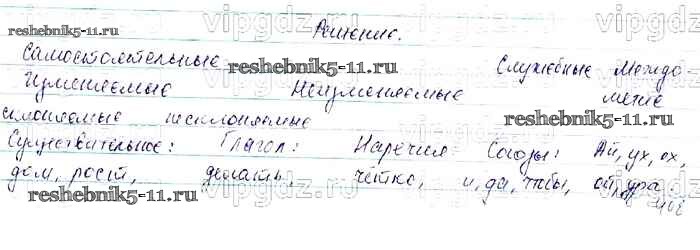 Решение.
Самостоятельные Служебные Междо-
Изменяемые Неизменяемые метие
склоняемые несклоняемые
Существительное: Глагол: Наречия Союзы: Ай, ух, ох,
дом, рост, делать, чётко, и, да, чтобы, ой, ура
reshebnik5-11.ru
reshebnik5-11.ru
reshebnik5-11.ru
reshebnik5-11.ru
reshebnik5-11.ru
vipgdz.ru
vipgdz.ru
vipgdz.ru